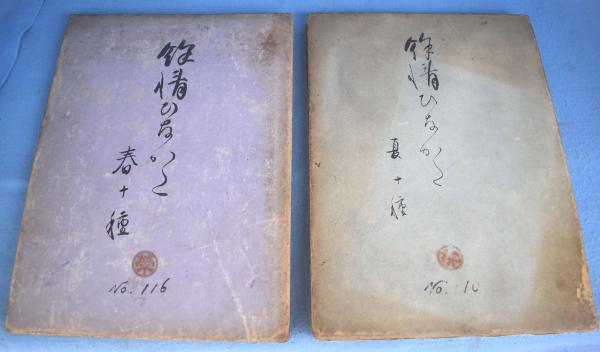 餘情ひなかた
春十種
No. 116
餘情ひなかた
夏十種
No. 1